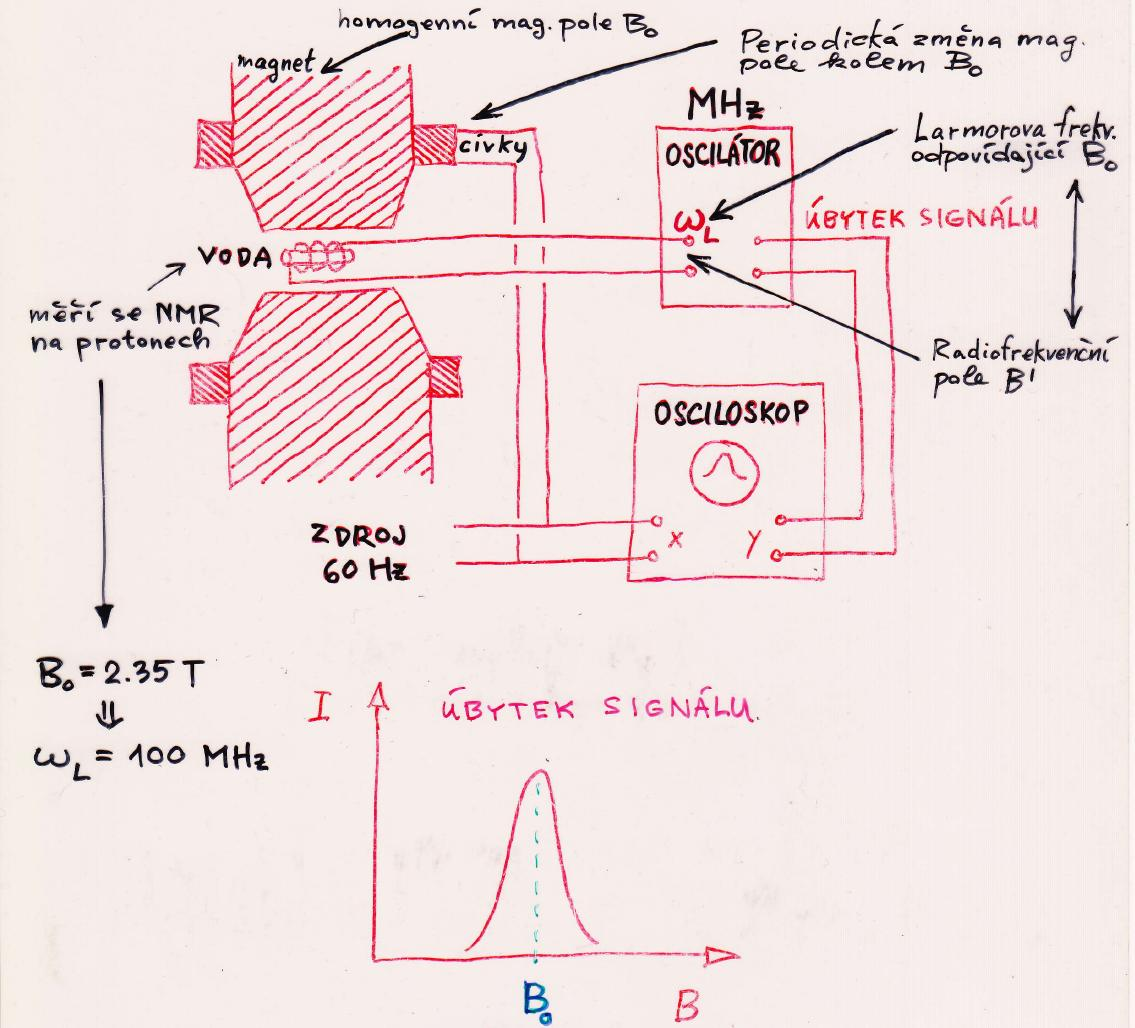 homogenní mag. pole B₀
magnet
Periodická změna mag.
pole kolem B₀
MHz
cívky
OSCILÁTOR
Larmorova frekv.
odpovídající B₀
ω_L
ÚBYTEK SIGNÁLU
VODA
měří se NMR
na protonech
Radiofrekvenční
pole B'
OSCILOSKOP
X Y
ZDROJ
60 Hz
B₀ = 2.35 T
⇓
ω_L = 100 MHz
I
ÚBYTEK SIGNÁLU.
B₀
B